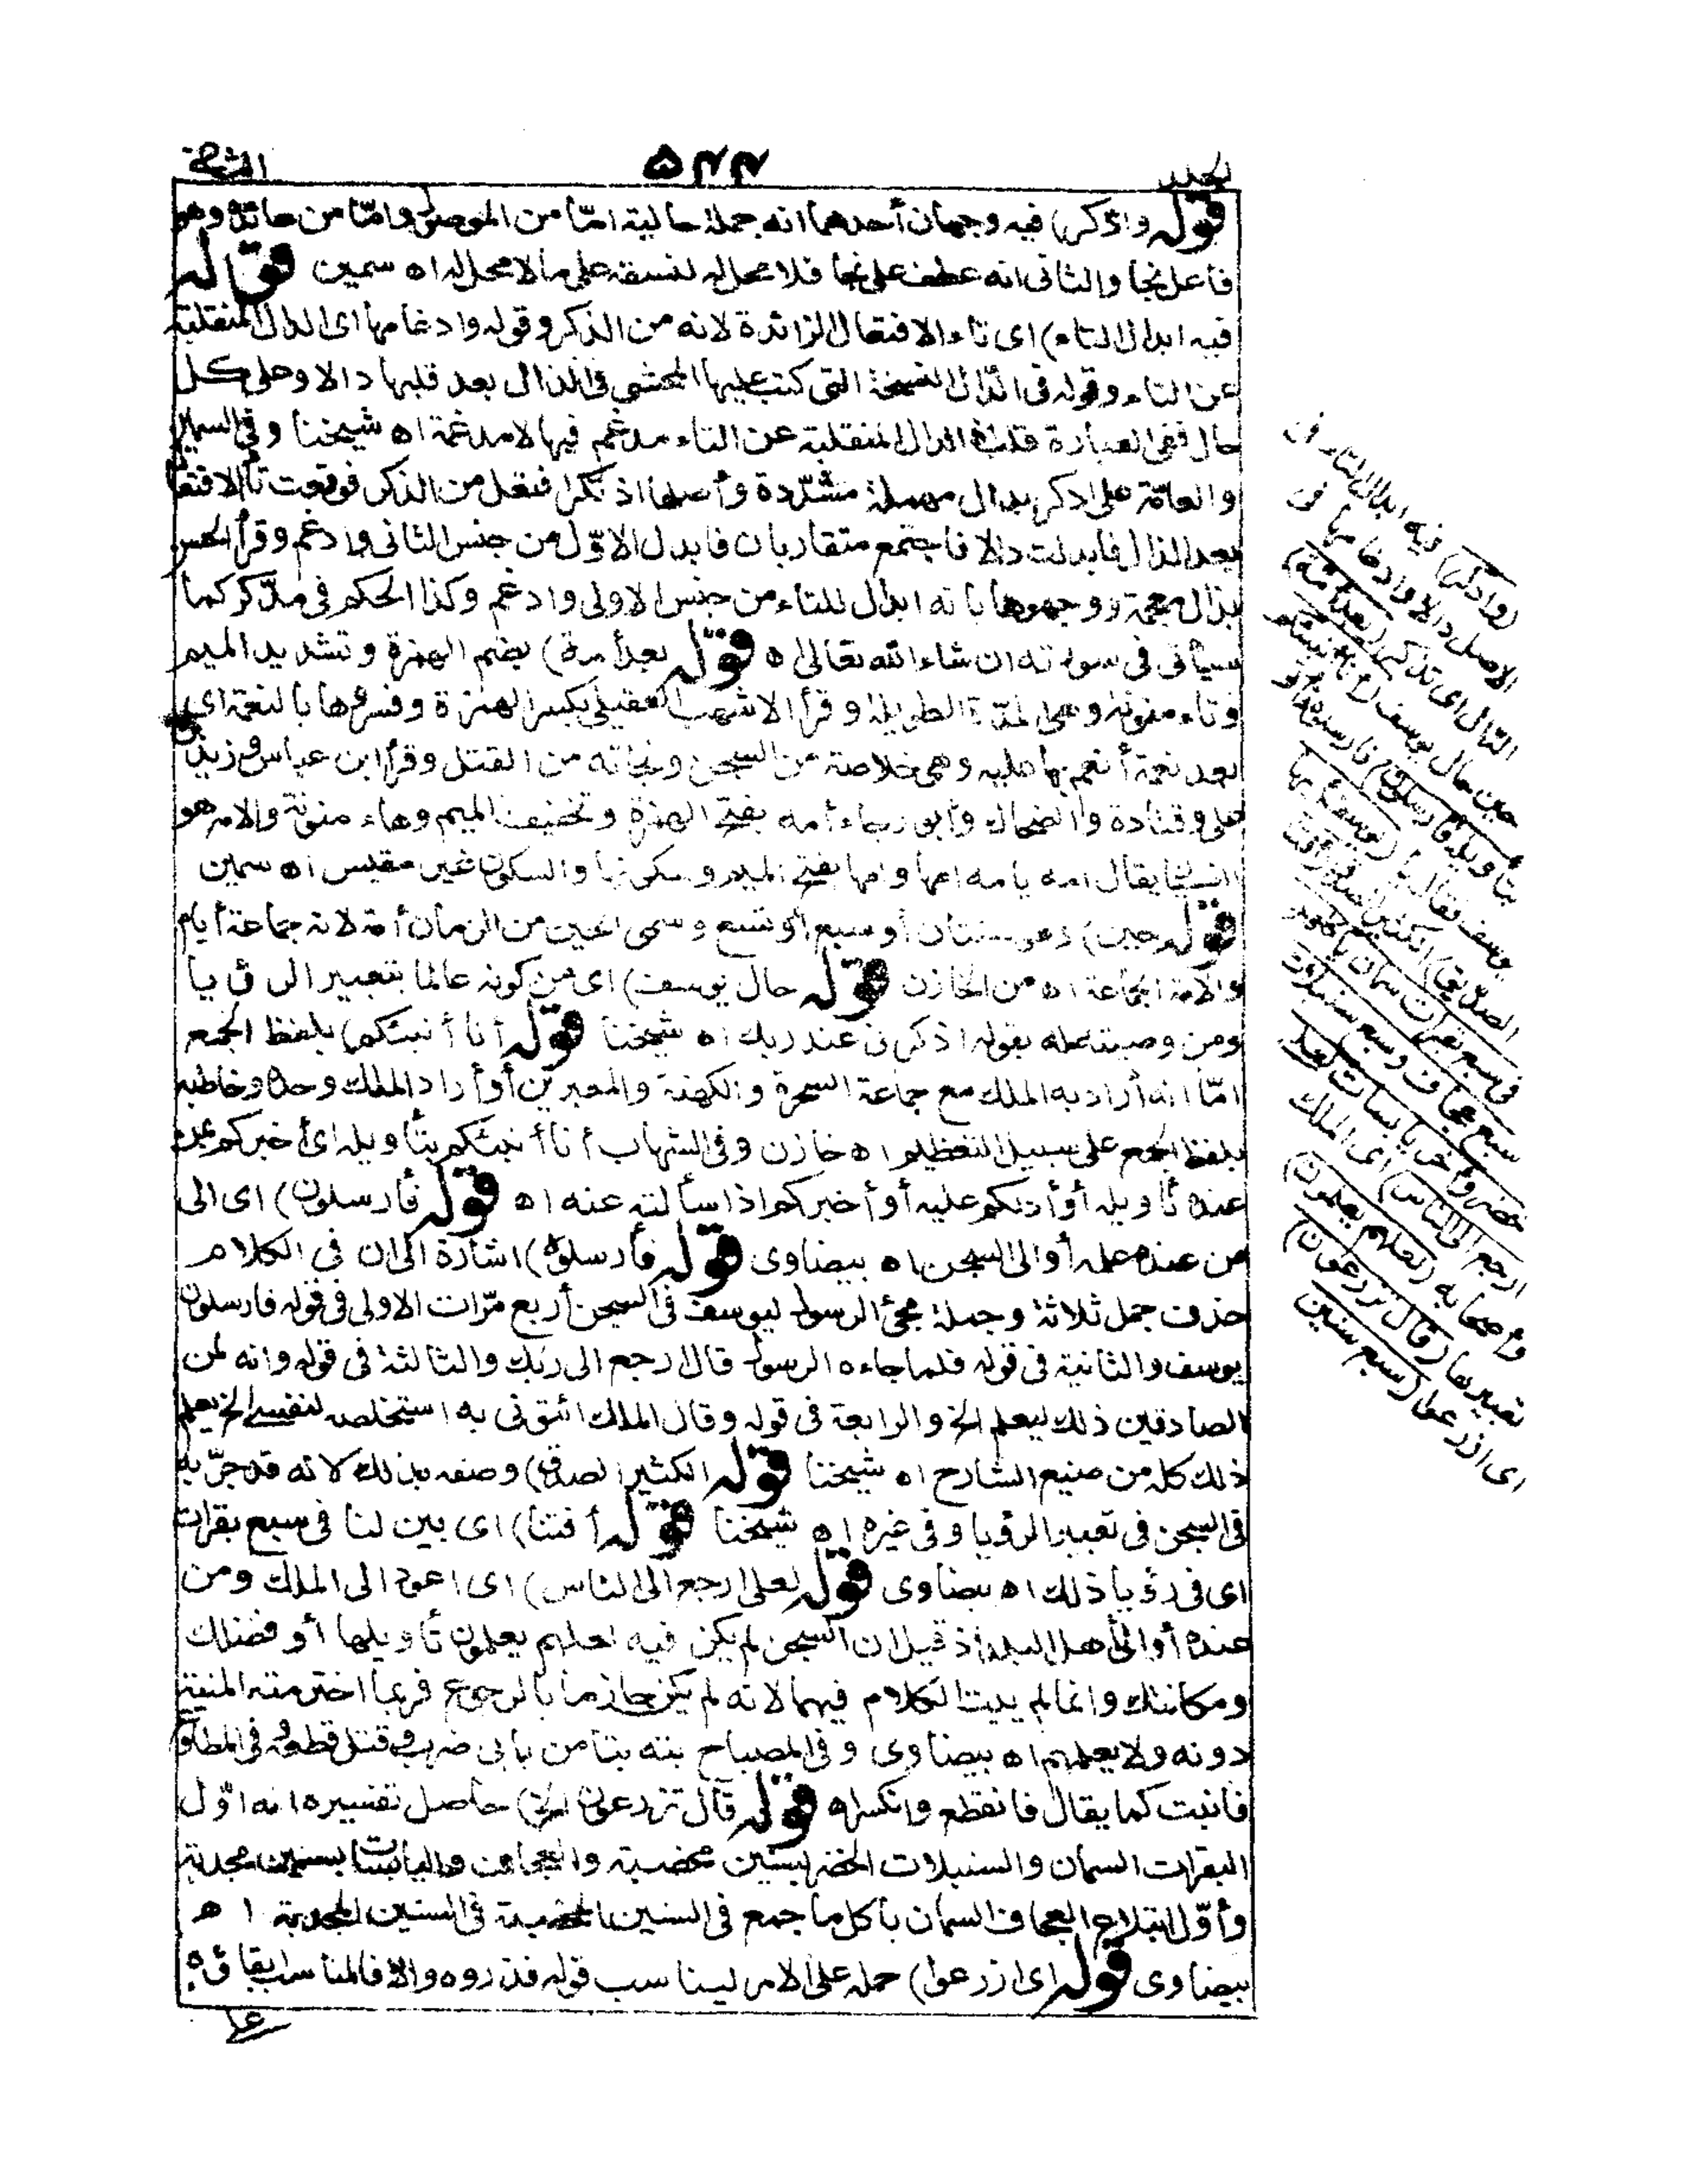 الجلد ٥٤٤
قوله وادّكر) فيه وجهان أحدهما انه جملة حالية امّا من الموصول وامّا من عائده وهو
فاعل نجا والثانى انه عطف على نجا فلا محل له لنسقه على ما لا محل له اه سمين قوله
فيه ابدال التاء) اى تاء الافتعال الزائدة لانه من الذكر وقوله وادغامها اى الدال المنقلبة
عن التاء وقوله فى الدال النسخة التى كتب عليها المحشى فى الذال بعد قلبها دالا وعلى كل
حال ففى العبارة قلب اذ الدال المنقلبة عن التاء مدغم فيها لا مدغمة اه شيخنا وفى السمين
والعامّة على ادكر بدال مهملة مشدّدة وأصلها اذتكر افتعل من الذكر فوقعت تاء الافتعال
بعد الذال فابدلت دالا فاجتمع متقاربان فابدل الاوّل من جنس الثانى وادغم وقرأ الحسن
بذال معجمة ووجهوها بانه ابدال للتاء من جنس الاولى وادغم وكذا الحكم فى مدّكر كما
سيأتى فى سورته ان شاء الله تعالى اه قوله بعد أمة) بضم الهمزة وتشديد الميم
وتاء منونة وهى المدّة الطويلة وقرأ الاشهب العقيلى بكسر الهمزة وفسروها بالنعمة اى
بعد نعمة أنعم بها عليه وهى خلاصه من السجن ونجاته من القتل وقرأ ابن عباس وزيد بن
على وقتادة والضحاك وأبو رجاء أمه بفتح الهمزة وتخفيف الميم وهاء منونة والامه هو
النسيان يقال أمه يأمه امها وامها بفتح الميم وسكونها والسكون غير مقيس اه سمين
قوله حين) وهو سنتان أو سبع أو تسع وسمى الحين من الزمان أمة لانه جماعة أيام
والامة الجماعة اه من الخازن قوله حال يوسف) اى من كونه عالما بتعبير الرؤيا
ومن وصيته له بقوله اذكرنى عند ربك اه شيخنا قوله أنا أنبئكم) بلفظ الجمع
امّا انه أراد به الملك مع جماعة السحرة والكهنة والمعبرين أو أراد الملك وحده وخاطبه
بلفظ الجمع على سبيل التعظيم اه خازن وفى الشهاب أنا أنبئكم بتأويله اى أخبركم عمن
عنده تأويله أو أدلكم عليه أو أخبركم اذا سألته عنه اه قوله فأرسلون) اى الى
من عنده علمه أو الى السجن اه بيضاوى قوله فأرسلوه) اشارة الى ان فى الكلام
حذف جمل ثلاثة وجملة مجئ الرسول ليوسف فى السجن أربع مرّات الاولى فى قوله فارسلون
يوسف والثانية فى قوله فلما جاءه الرسول قال ارجع الى ربك والثالثة فى قوله وانه لمن
الصادقين ذلك ليعلم الخ والرابعة فى قوله وقال الملك ائتونى به استخلصه لنفسى الخ يعلم
ذلك كله من صنيع الشارح اه شيخنا قوله الكثير الصدق) وصفه بذلك لانه قد جرّبه
فى السجن فى تعبير الرؤيا وفى غيره اه شيخنا قوله أفتنا) اى بين لنا فى سبع بقرات
اى فى رؤيا ذلك اه بيضاوى قوله لعلى ارجع الى الناس) اى اعود الى الملك ومن
عنده أو الى أهل البلد اذ قيل ان السجن لم يكن فيه لعلهم يعلمون تأويلها أو فضلك
ومكانتك وانما لم يبت الكلام فيهما لانه لم يكن جازما بالرجوع فربما اخترمته المنية
دونه ولا يعلمهم اه بيضاوى وفى المصباح بته بتا من بابى ضرب وقتل قطعه فى المطاوع
فانبت كما يقال فانقطع وانكسر اه قوله قال تزرعون الخ) حاصل تفسيره انه اوّل
البقرات السمان والسنبلات الخضر بسنين مخصبة والعجاف واليابسات بسنين مجدبة
وأوّل ابتلاع العجاف السمان بأكل ما جمع فى السنين المخصبة فى السنين المجدبة اه
بيضاوى قوله اى ازرعوا) حمله على الامر ليناسب قوله فذروه والا فالمناسب ابقاؤه
على
(وادكر) فيه ابدال التاء فى
الاصل دالا وادغامها فى
الدال اى تذكر (بعد أمة)
حين حال يوسف (أنا أنبئكم
بتأويله فأرسلون) فأرسلوه فأتى
يوسف فقال يا (يوسف أيها
الصديق) الكثير الصدق (أفتنا
فى سبع بقرات سمان يأكلهن
سبع عجاف وسبع سنبلات
خضر وأخر يابسات لعلى
ارجع الى الناس) اى الملك
وأصحابه (لعلهم يعلمون)
تعبيرها (قال تزرعون)
اى ازرعوا (سبع سنين